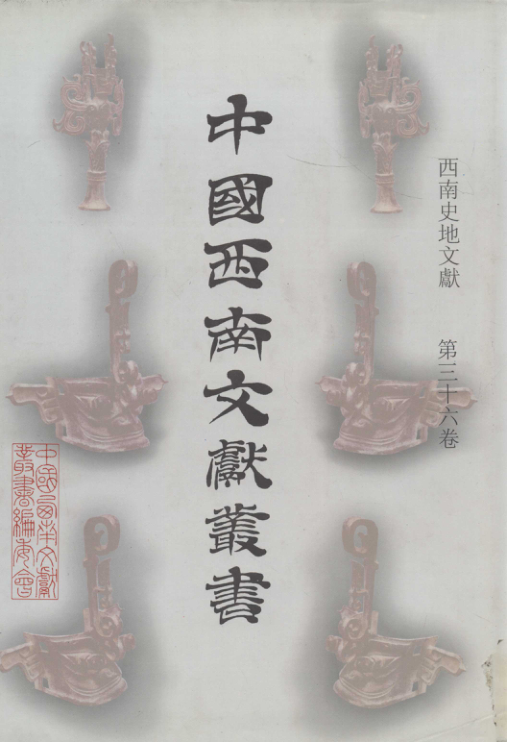 西南史地文獻 第三十六卷
中國西南文獻叢書
中國西南文獻
叢書編委會